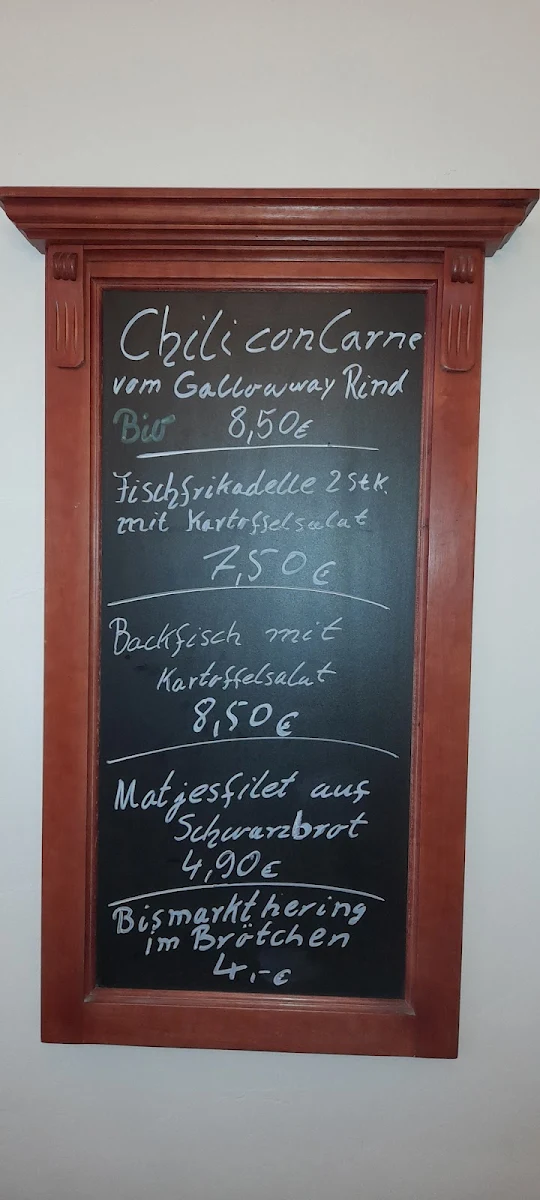 Chili con Carne
vom Gallowway Rind
Bio 8,50€
Fischfrikadelle 2 Stk.
mit Kartoffelsalat
7,50€
Backfisch mit
Kartoffelsalat
8,50€
Matjesfilet auf
Schwarzbrot
4,90€
Bismarkthering
im Brötchen
4,-€